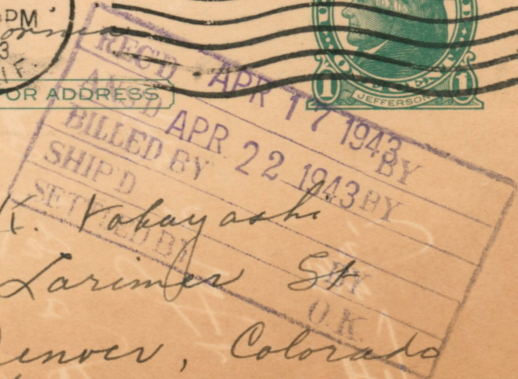 PM
3
IF.
OR ADDRESS
1 JEFFERSON 1
REC'D APR 17 1943 BY
ANS'D APR 22 1943 BY
BILLED BY
SHIP'D BY
SETTLED BY O.K.
K. Kobayashi
Larimer St
Denver, Colorado